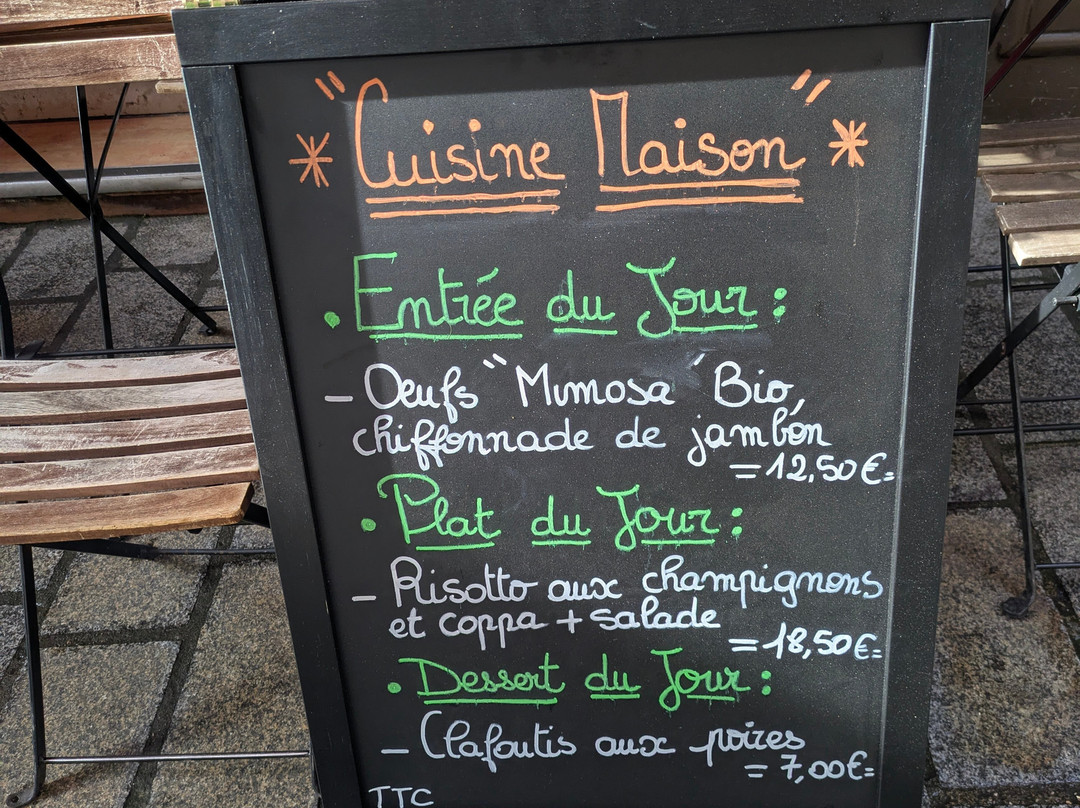 * "Cuisine Maison" *
• Entrée du Jour :
– Oeufs "Mimosa" Bio,
chiffonnade de jambon
= 12,50€=
• Plat du Jour :
– Risotto aux champignons
et coppa + salade
= 18,50€=
• Dessert du Jour :
– Clafoutis aux poires
= 7,00€=
TTC